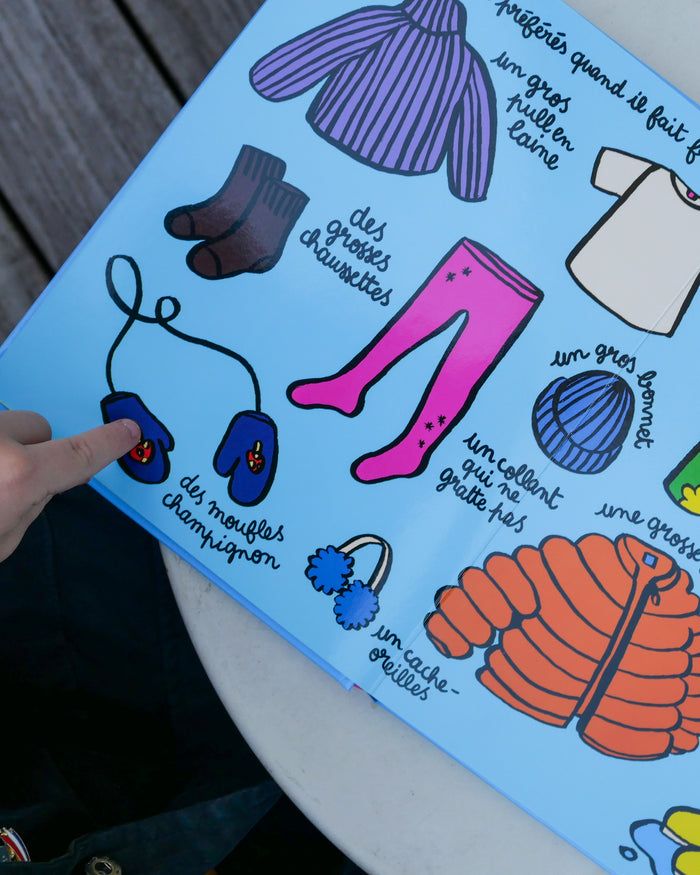 préférés quand il fait
un gros
pull en
laine
des
grosses
chaussettes
un gros bonnet
un collant
qui ne
gratte pas
des moufles
champignon
une grosse
un cache-
oreilles